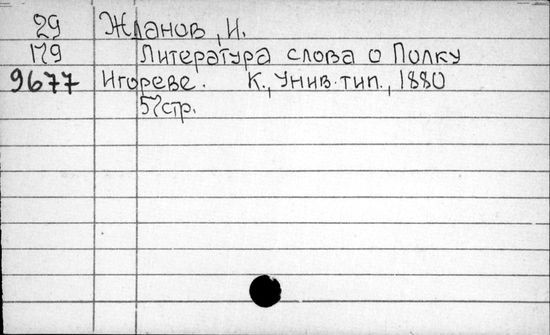 29 Жданов, И.
179 Литература слова о Полку
9677 Игореве. К., Унив. тип., 1880
57 стр.